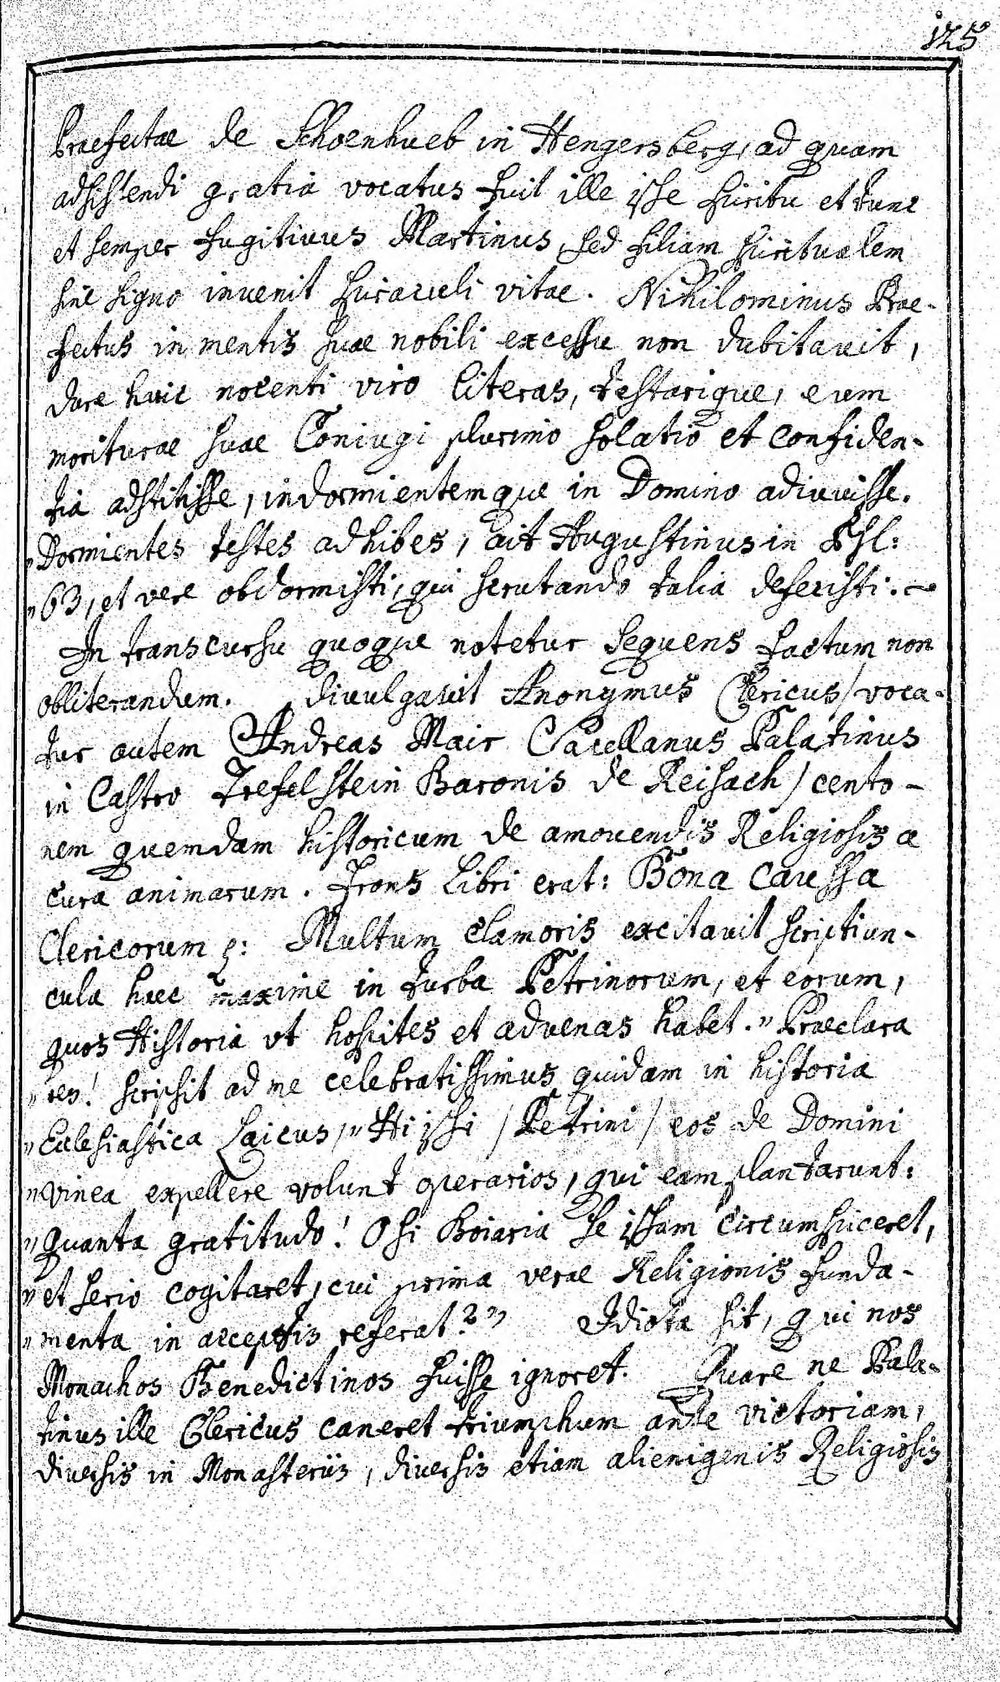 125
Praefectae de Schoenhueb in Hengersberg, ad quam
adsistendi gratia vocatus fuit ille ipse spiritu et tunc
et semper fugitivus Martinus, sed filiam spiritualem
sine signo invenit spiraculi vitae. Nihilominus Prae-
fectus in mentis suae nobili excessu non dubitavit,
dare huic nocenti viro literas, testarique, eum
moriturae suae Coniugi plurimo solatio et confiden-
tia adstitisse, indormientemque in Domino adiuvisse.
„Dormientes testes adhibes, ait Augustinus in Psl:
„63, et vere obdormisti, qui scrutando talia defecisti.
In transcursu quoque notetur sequens factum non
obliterandum. divulgavit Anonymus Clericus / voca-
tur autem Andreas Mair Capellanus Palatinus
in Castro Trefelstein Baronis de Reisach / cento-
nem quemdam historicum de amovendis Religiosis a
cura animarum. Frons Libri erat: Bona Caussa
Clericorum p: Multum clamoris excitavit scriptiun-
cula haec maxime in turba Petrinorum, et eorum,
quos Historia ut hospites et advenas habet. „Praeclara
„res! scripsit ad me celebratissimus quidam in historia
„Ecclesiastica Laicus, „Hi ipsi / Petrini / eos de Domini
„vinea expellere volunt operarios, qui eam plantarunt:
„Quanta gratitudo! O si Boiaria se ipsam circumspiceret,
„et serio cogitaret, cui prima verae Religionis funda-
„menta in acceptis referat?„ Idiota sit, qui nos
Monachos Benedictinos fuisse ignoret. Quare ne Pala-
tinus ille Clericus caneret triumphum ante victoriam,
diversis in Monasteriis, diversis etiam alienigenis Religiosis